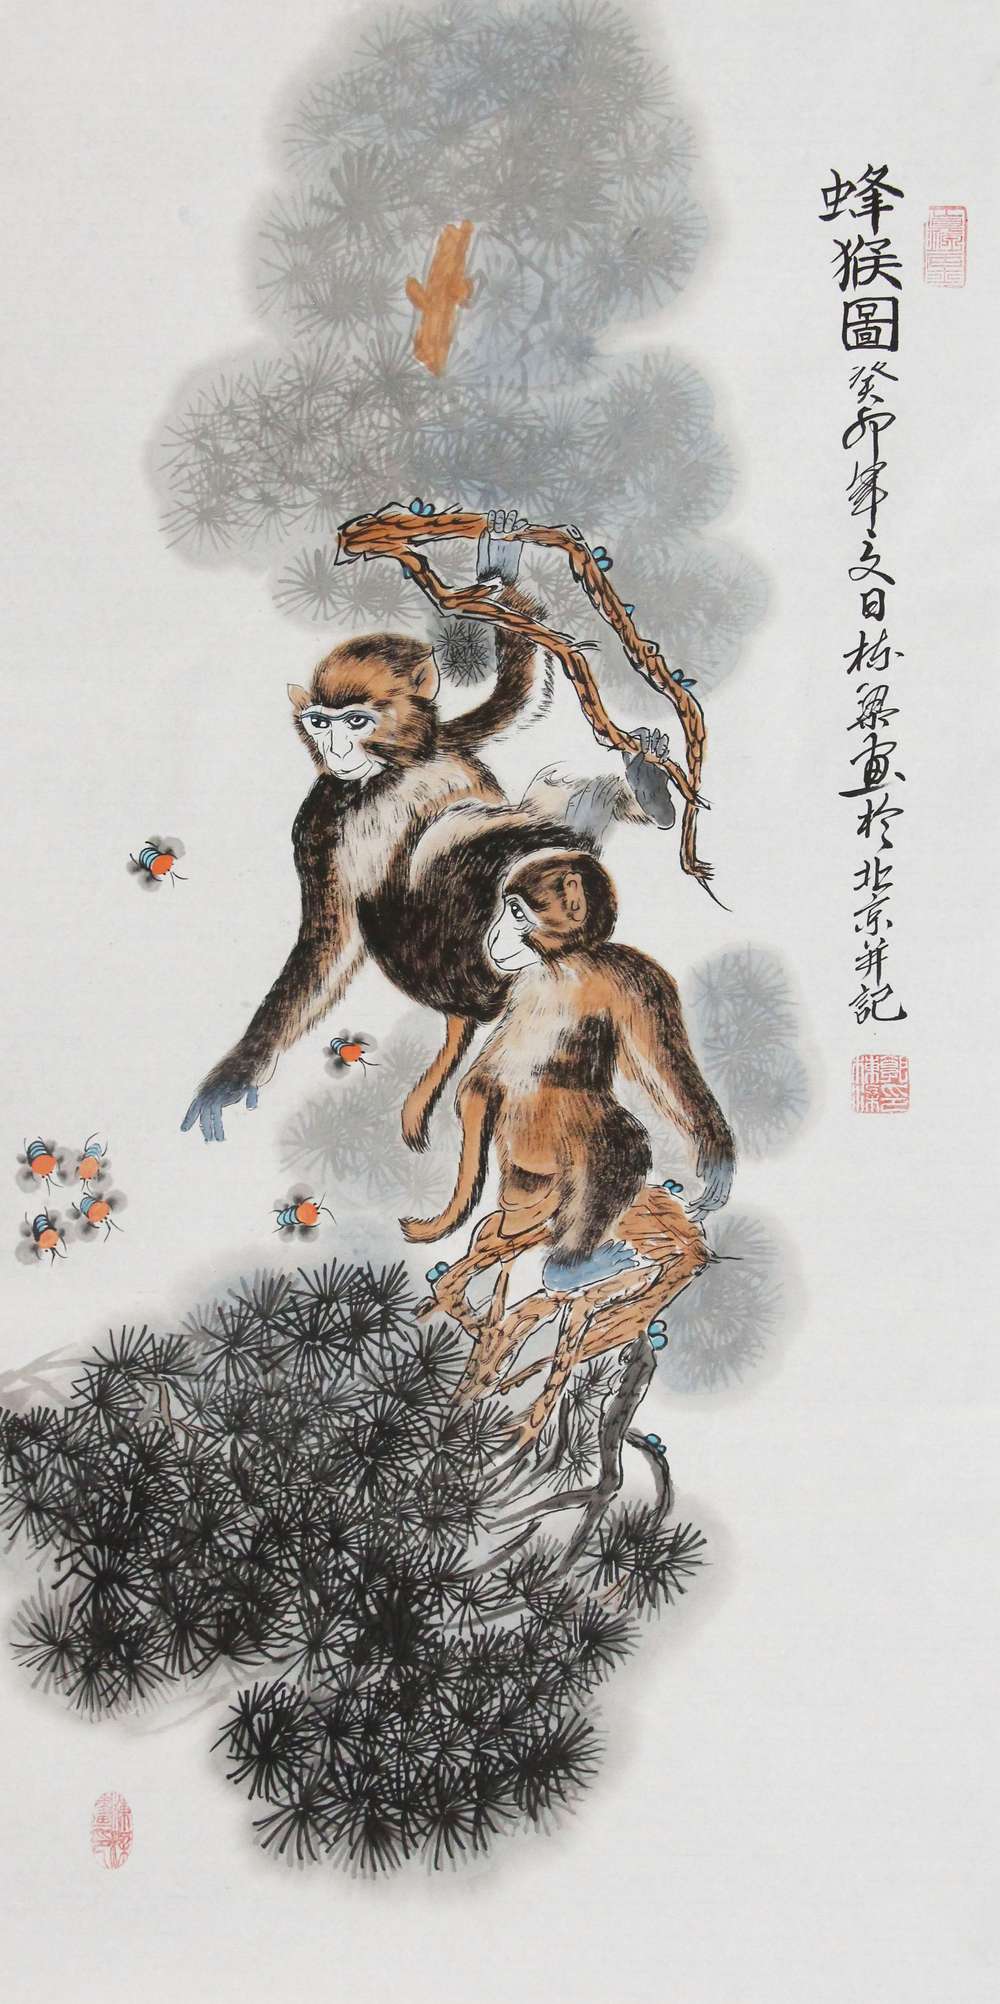 蜂猴圖癸卯年文日栋梁画於北京并記